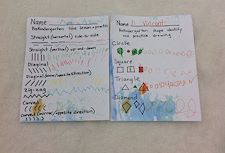 Name
Prekindergarten line lesson + practice
Straight (horizontal) side-to-side
Straight (vertical) up-and-down
Diagonal
Diagonal (more/opposite direction)
Zig-zag
Curved
Curved (more/opposite direction)
Name Vincent
Prekindergarten shape identify
and practice drawing
Circle
Square
Triangle
Diamond